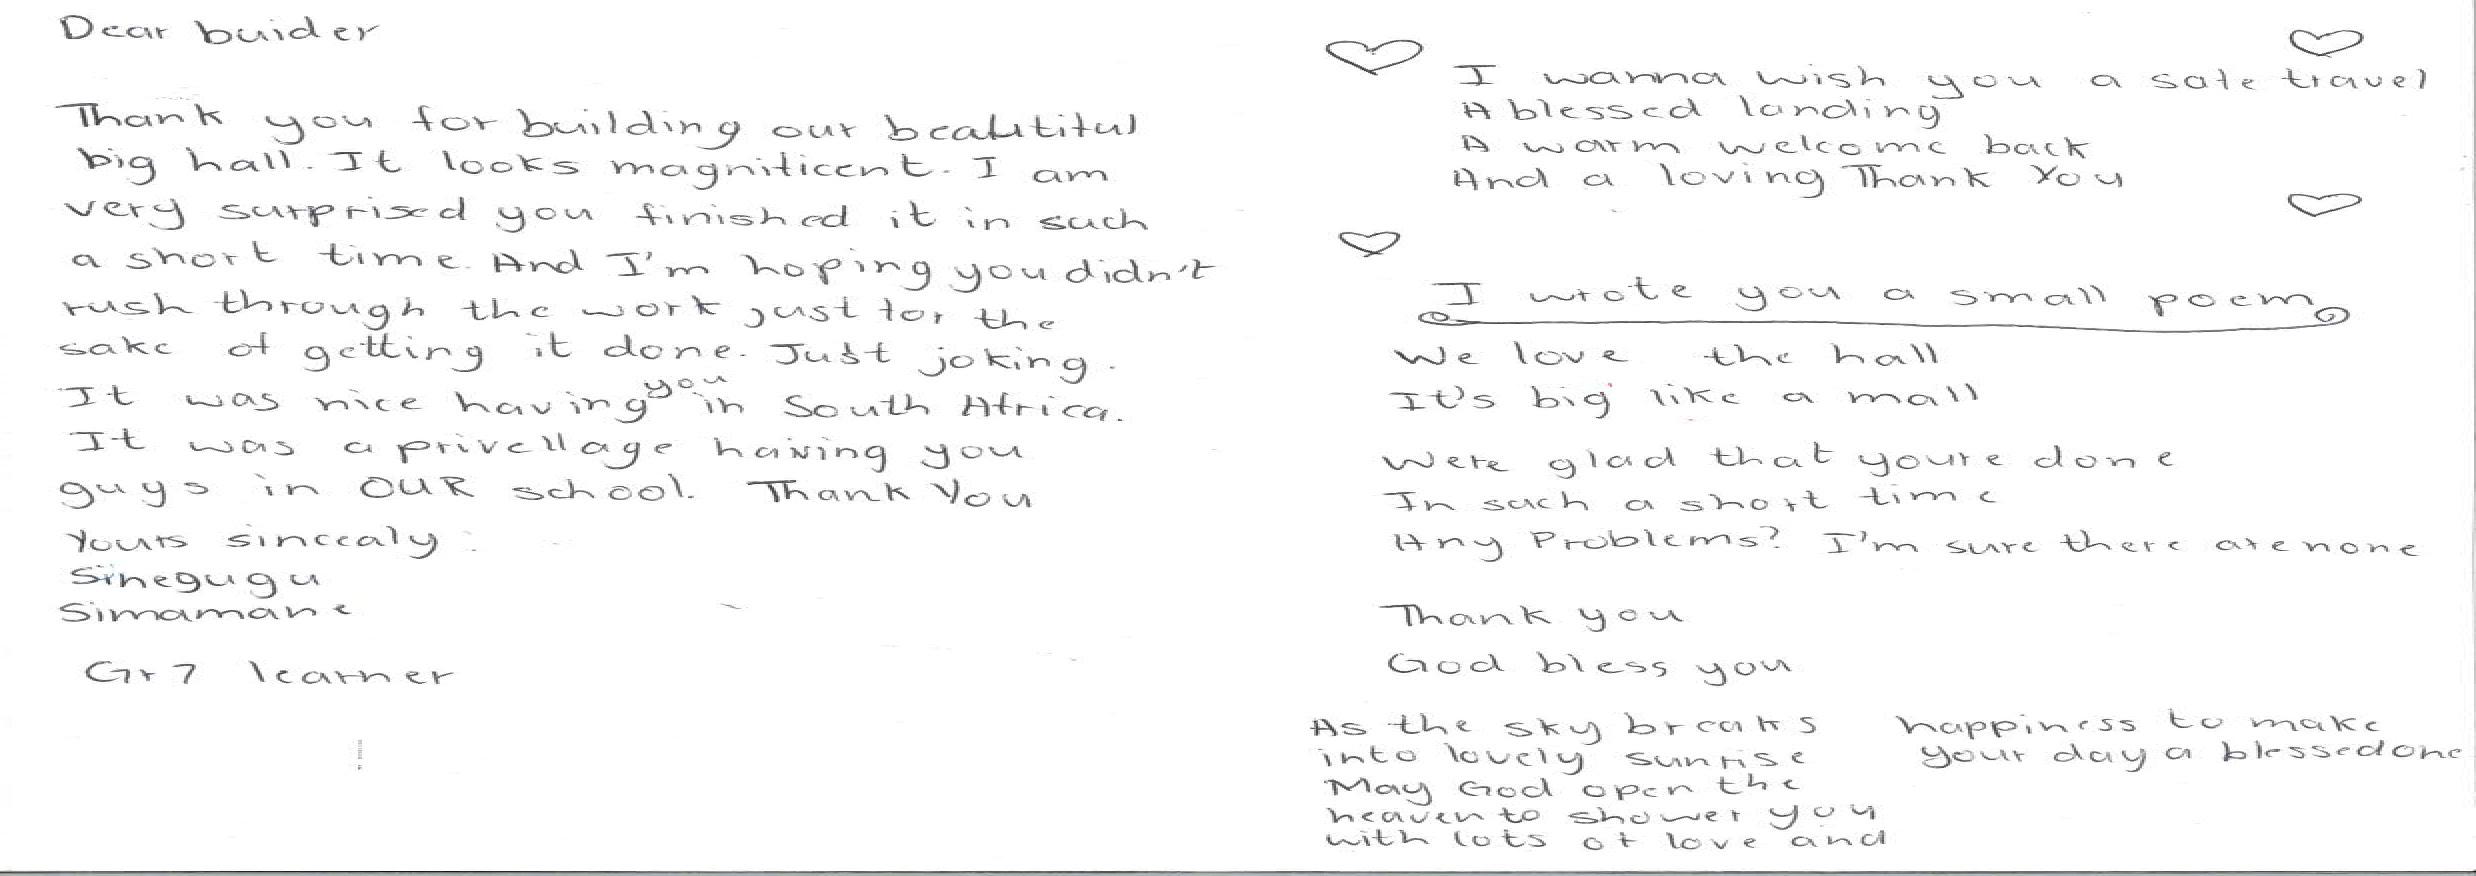 Dear buider
Thank you for building our beautiful
big hall. It looks magnificent. I am
very surprised you finished it in such
a short time. And I'm hoping you didn't
rush through the work just for the
sake of getting it done. Just joking.
It was nice having you in South Africa.
It was a privellage having you
guys in OUR school. Thank You
Yours sinccaly
Sinegugu
Simamane
Gr 7 learner
I wanna wish you a safe travel
A blessed landing
A warm welcome back
And a loving Thank You
I wrote you a small poem
We love the hall
It's big like a mall
Were glad that youre done
In such a short time
Any Problems? I'm sure there are none
Thank you
God bless you
As the sky breaks
into lovely sunrise
May God open the
heaven to shower you
with lots of love and
happiness to make
your day a blessed one